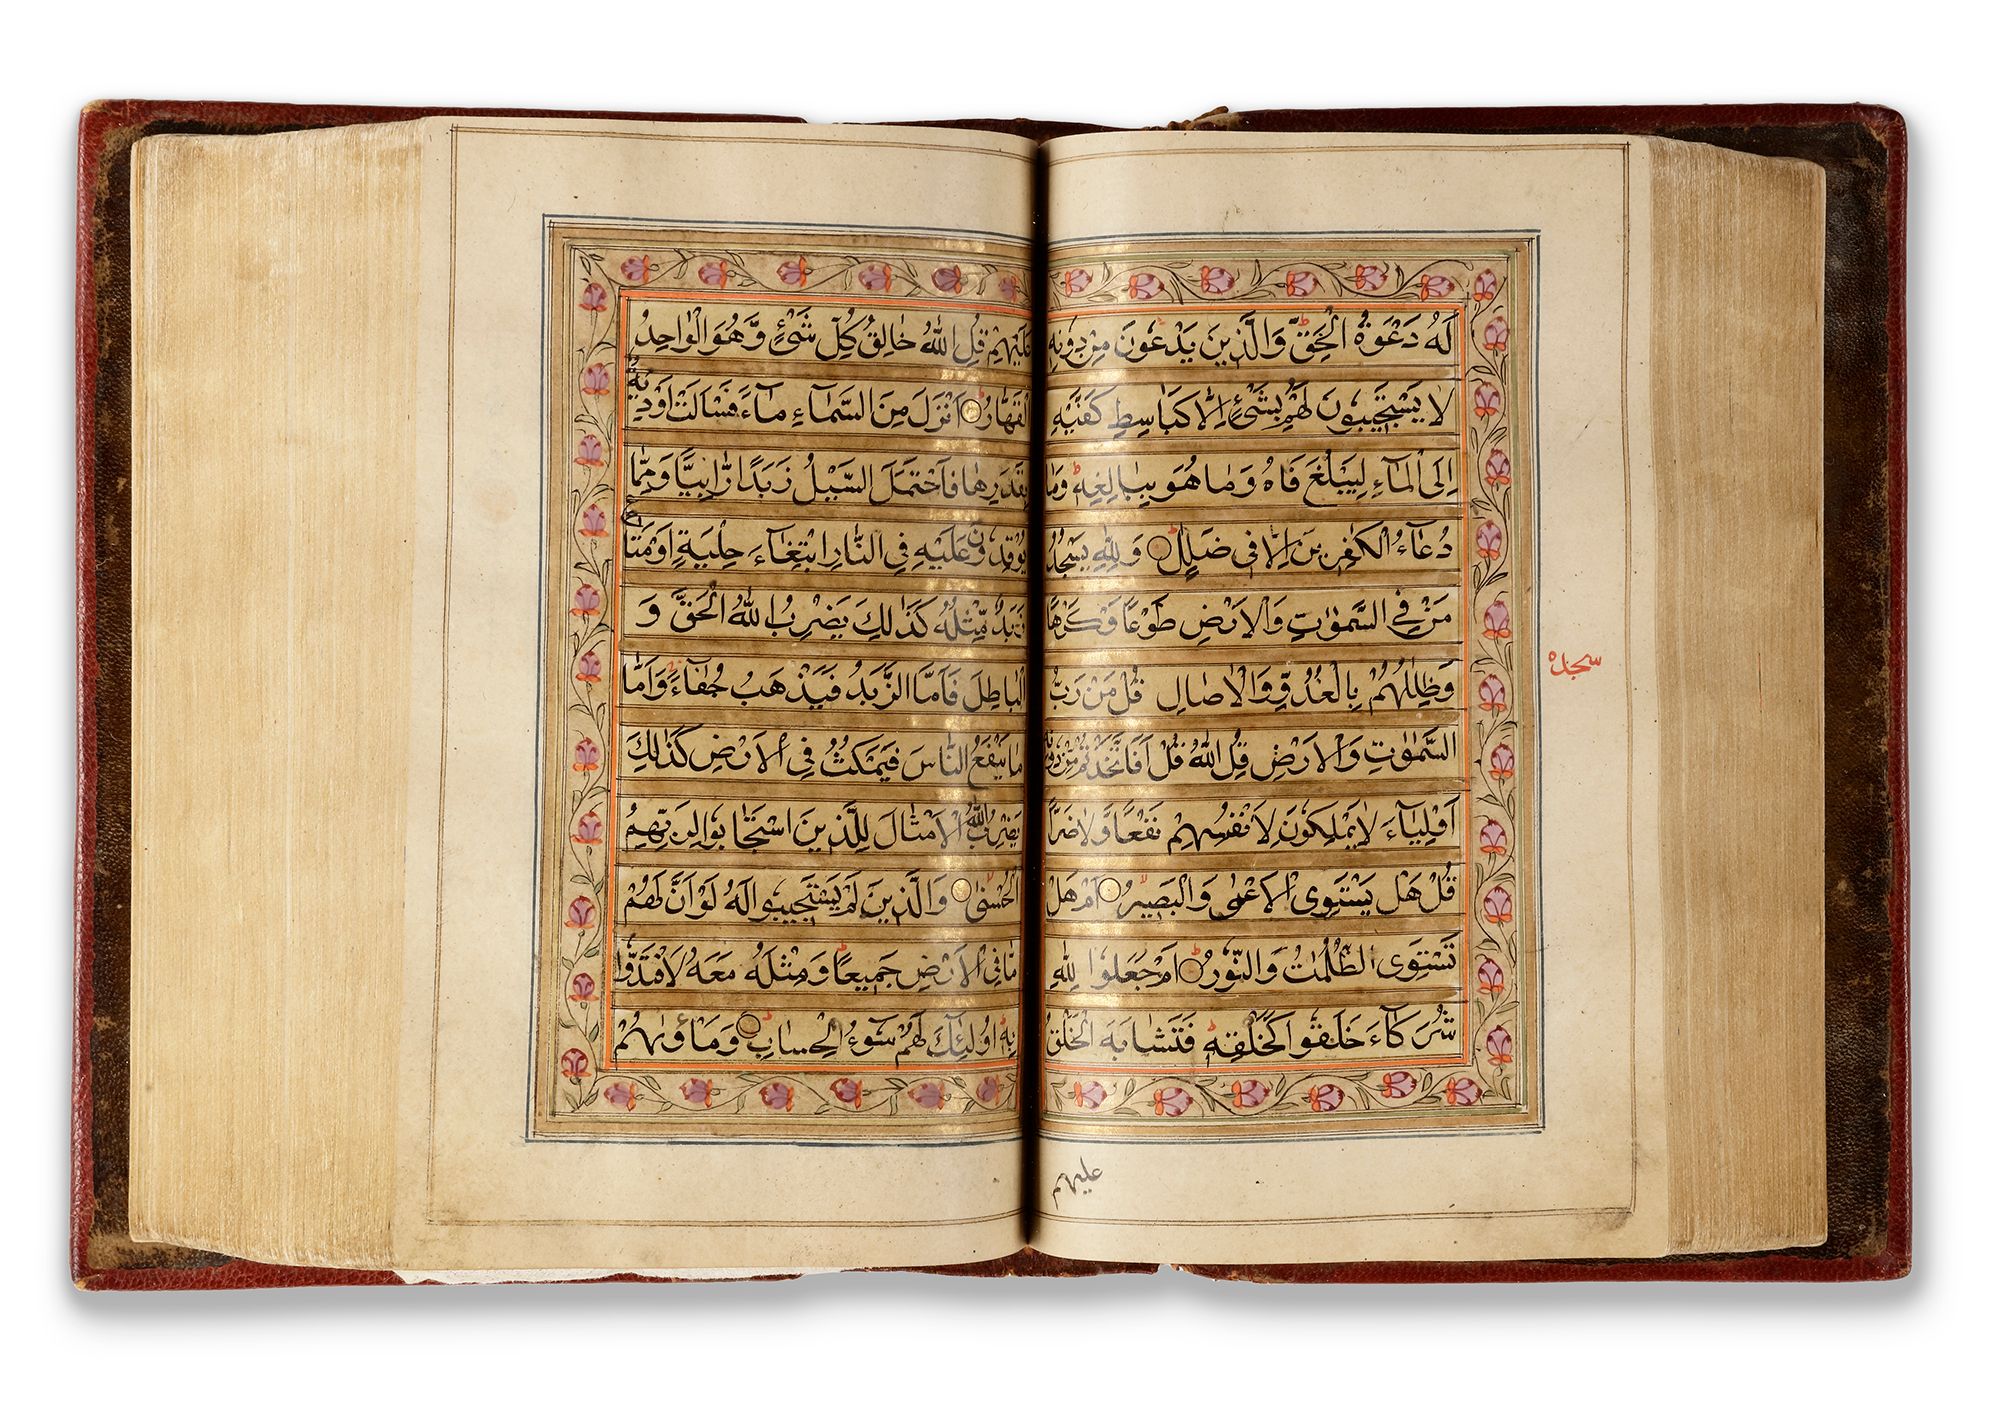 لَهٗ دَعْوَةُ الْحَقِّ وَالَّذِيْنَ يَدْعُوْنَ مِنْ دُوْنِهٖ
لَا يَسْتَجِيْبُوْنَ لَهُمْ بِشَيْءٍ اِلَّا كَبَاسِطِ كَفَّيْهِ
اِلَى الْمَآءِ لِيَبْلُغَ فَاهُ وَمَا هُوَ بِبَالِغِهٖ ط وَمَا
دُعَآءُ الْكٰفِرِيْنَ اِلَّا فِيْ ضَلٰلٍ وَلِلّٰهِ يَسْجُدُ
مَنْ فِي السَّمٰوٰتِ وَالْاَرْضِ طَوْعًا وَّكَرْهًا
وَّظِلٰلُهُمْ بِالْغُدُوِّ وَالْاٰصَالِ قُلْ مَنْ رَبُّ
السَّمٰوٰتِ وَالْاَرْضِ قُلِ اللّٰهُ قُلْ اَفَاتَّخَذْتُمْ مِنْ دُوْنِهٖ
اَوْلِيَآءَ لَا يَمْلِكُوْنَ لِاَنْفُسِهِمْ نَفْعًا وَّلَا ضَرًّا
قُلْ هَلْ يَسْتَوِى الْاَعْمٰى وَالْبَصِيْرُ اَمْ هَلْ
تَسْتَوِى الظُّلُمٰتُ وَالنُّوْرُ اَمْ جَعَلُوْا لِلّٰهِ
شُرَكَآءَ خَلَقُوْا كَخَلْقِهٖ فَتَشَابَهَ الْخَلْقُ
سجده
عليهم
عَلَيْهِمْ قُلِ اللّٰهُ خَالِقُ كُلِّ شَيْءٍ وَّهُوَ الْوَاحِدُ
الْقَهَّارُ اَنْزَلَ مِنَ السَّمَآءِ مَآءً فَسَالَتْ اَوْدِيَةٌ
بِقَدَرِهَا فَاحْتَمَلَ السَّيْلُ زَبَدًا رَّابِيًا وَمِمَّا
يُوْقِدُوْنَ عَلَيْهِ فِي النَّارِ ابْتِغَآءَ حِلْيَةٍ اَوْ مَتَاعٍ
زَبَدٌ مِّثْلُهٗ كَذٰلِكَ يَضْرِبُ اللّٰهُ الْحَقَّ وَ
الْبَاطِلَ فَاَمَّا الزَّبَدُ فَيَذْهَبُ جُفَآءً وَاَمَّا
مَا يَنْفَعُ النَّاسَ فَيَمْكُثُ فِي الْاَرْضِ كَذٰلِكَ
يَضْرِبُ اللّٰهُ الْاَمْثَالَ لِلَّذِيْنَ اسْتَجَابُوْا لِرَبِّهِمُ
الْحُسْنٰى وَالَّذِيْنَ لَمْ يَسْتَجِيْبُوْا لَهٗ لَوْ اَنَّ لَهُمْ
مَّا فِي الْاَرْضِ جَمِيْعًا وَّمِثْلَهٗ مَعَهٗ لَافْتَدَوْا
بِهٖ اُولٰٓئِكَ لَهُمْ سُوْٓءُ الْحِسَابِ وَمَاْوٰىهُمْ